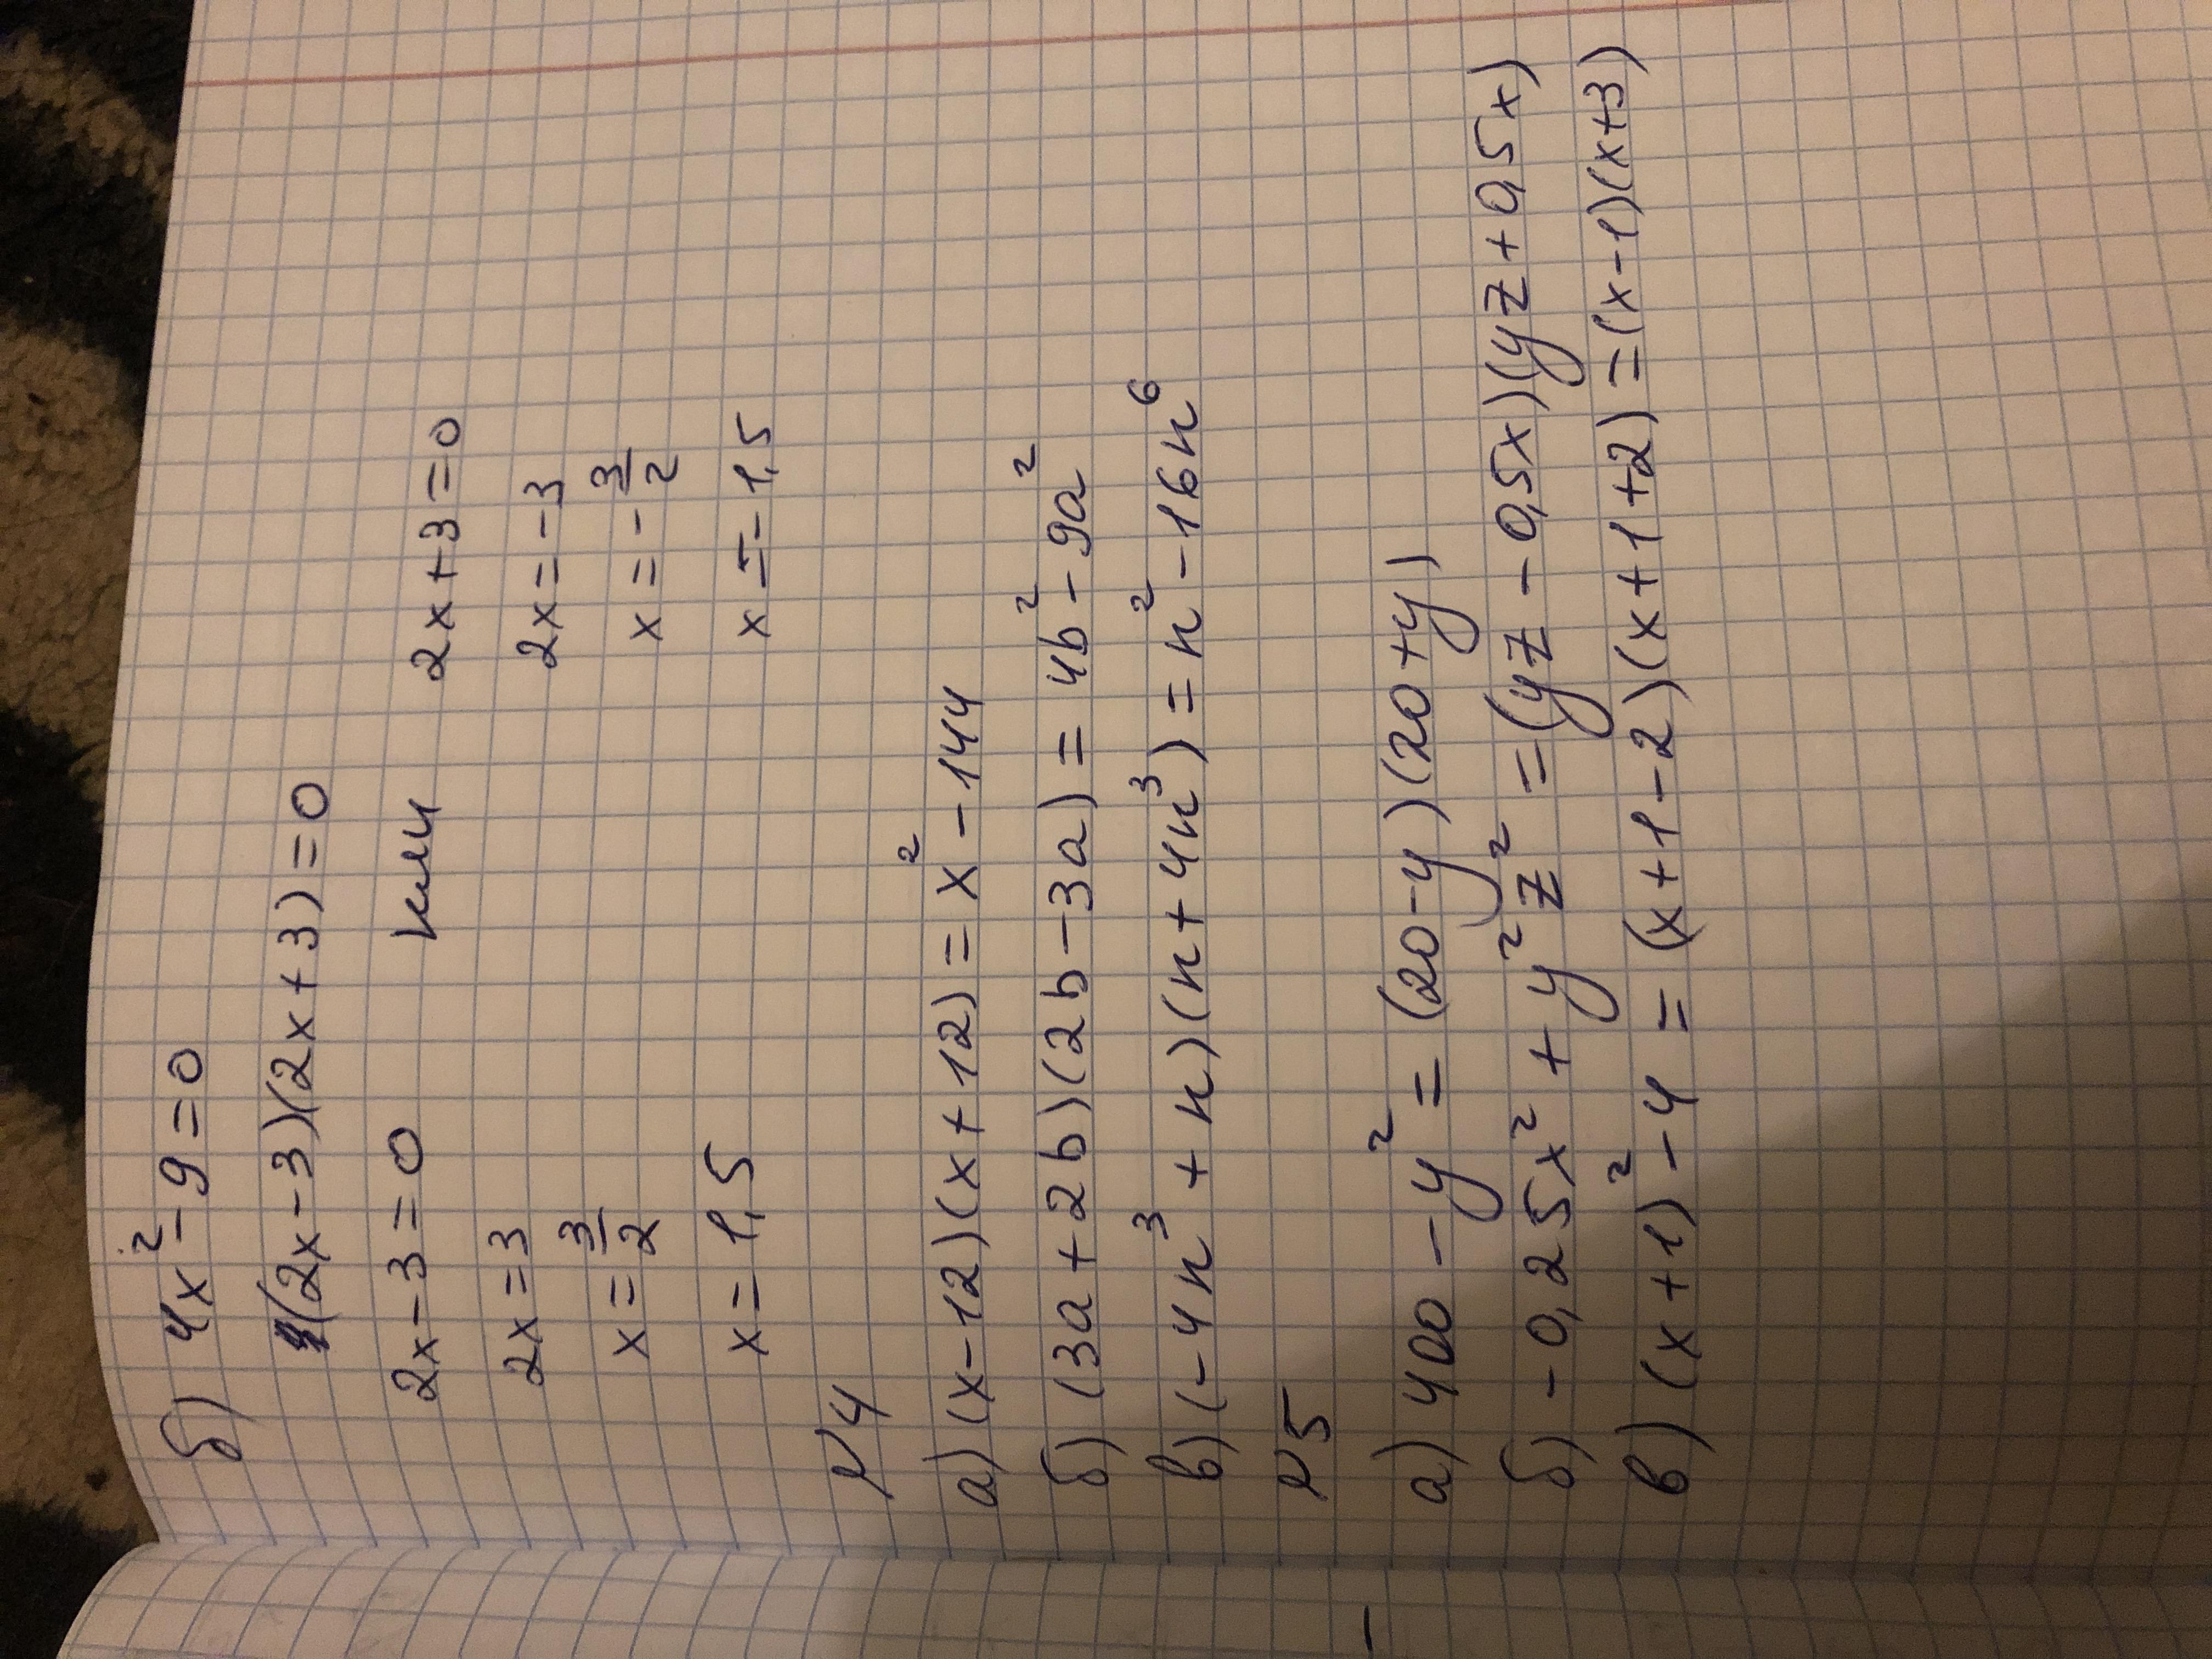 б) 4x² - 9 = 0
(2x - 3)(2x + 3) = 0
2x - 3 = 0 или 2x + 3 = 0
2x = 3 2x = -3
x = 3/2 x = - 3/2
x = 1,5 x = -1,5
№4
а) (x - 12)(x + 12) = x² - 144
б) (3a + 2b)(2b - 3a) = 4b² - 9a²
в) (-4n³ + n)(n + 4n³) = n² - 16n⁶
№5
а) 400 - y² = (20 - y)(20 + y)
б) -0,25x² + y²z² = (yz - 0,5x)(yz + 0,5x)
в) (x + 1)² - 4 = (x + 1 - 2)(x + 1 + 2) = (x - 1)(x + 3)